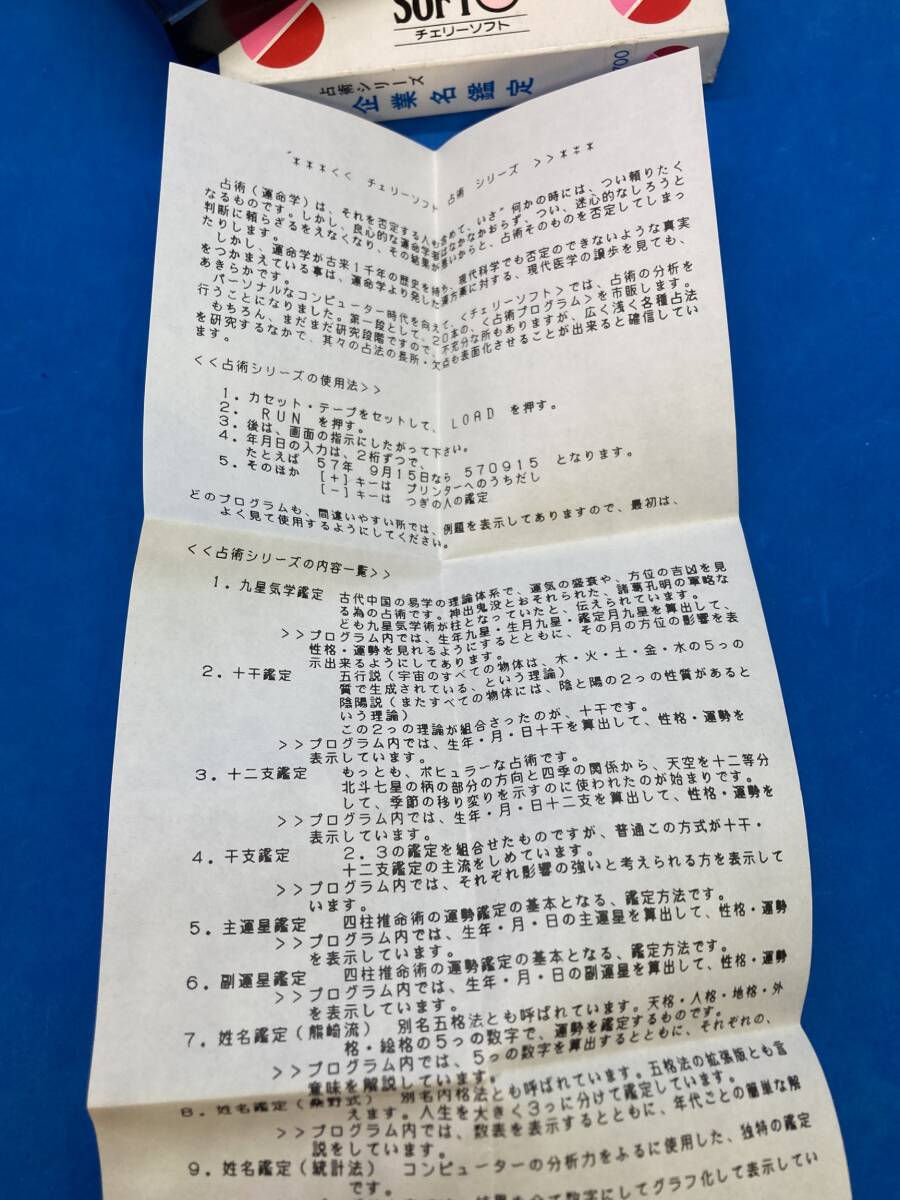 SOFT
チェリーソフト
占術シリーズ
企業名鑑定
700
***<< チェリーソフト 占術 シリーズ >>***
占術(運命学)は、それを否定する人も含めて、いざ"何かの時には、つい頼りたく
なるものです。しかし、良心的な運命学者はなかなかおらず、つい、迷心的なしろうと
判断に頼らざるをえなくなり、その結果が悪いからと、占術そのものを否定してしまっ
たりします。
しかし、運命学が古来1千年の歴史を持ち、現代科学でも否定のできないような真実
をつかまえている事は、運命学より発した漢方薬に対する、現代医学の譲歩を見ても、
あきらかです。
パーソナルなコンピューター時代を向えて、<チェリーソフト>では、占術の分析を
行うことになりました。第一段として、20本の、<占術プログラム>を市販します。
もちろん、まだまだ研究段階ですので、不充分な所もありますが、広く浅く各種占法
を研究するなかで、其々の占法の長所・欠点も表面化させることが出来ると確信してい
ます。
<<占術シリーズの使用法>>
1.カセット・テープをセットして、LOAD を押す。
2. RUN を押す。
3.後は、画面の指示にしたがって下さい。
4.年月日の入力は、2桁ずつで、
たとえば 57年 9月15日なら 570915 となります。
5.そのほか [+]キーは プリンターへのうちだし
[-]キーは つぎの人の鑑定
どのプログラムも、間違いやすい所では、例題を表示してありますので、最初は、
よく見て使用するようにしてください。
<<占術シリーズの内容一覧>>
1.九星気学鑑定 古代中国の易学の理論体系で、運気の盛衰や、方位の吉凶を見
る為の占術です。神出鬼没とおそれられた、諸葛孔明の軍略な
ども九星気学術が柱となっていたと、伝えられています。
>>プログラム内では、生年九星・生月九星・鑑定月九星を算出して、
性格・運勢を見れるようにするとともに、その月の方位の影響を表
示出来るようにしてあります。
2.十干鑑定 五行説(宇宙のすべての物体は、木・火・土・金・水の5っの
質で生成されている、という理論)
陰陽説(またすべての物体には、陰と陽の2っの性質があると
いう理論)
この2っの理論が組合さったのが、十干です。
>>プログラム内では、生年・月・日十干を算出して、性格・運勢を
表示しています。
3.十二支鑑定 もっとも、ポピュラーな占術です。
北斗七星の柄の部分の方向と四季の関係から、天空を十二等分
して、季節の移り変りを示すのに使われたのが始まりです。
>>プログラム内では、生年・月・日十二支を算出して、性格・運勢を
表示しています。
4.干支鑑定 2.3の鑑定を組合せたものですが、普通この方式が十干・
十二支鑑定の主流をしめています。
>>プログラム内では、それぞれ影響の強いと考えられる方を表示して
います。
5.主運星鑑定 四柱推命術の運勢鑑定の基本となる、鑑定方法です。
>>プログラム内では、生年・月・日の主運星を算出して、性格・運勢
を表示しています。
6.副運星鑑定 四柱推命術の運勢鑑定の基本となる、鑑定方法です。
>>プログラム内では、生年・月・日の副運星を算出して、性格・運勢
を表示しています。
7.姓名鑑定(熊崎流) 別名五格法とも呼ばれています。天格・人格・地格・外
格・絵格の5っの数字で、運勢を鑑定するものです。
>>プログラム内では、5っの数字を算出するとともに、それぞれの、
意味を解説しています。
8.姓名鑑定(桑野式) 別名内格法とも呼ばれています。五格法の拡張版とも言
えます。人生を大きく3っに分けて鑑定しています。
>>プログラム内では、数表を表示するとともに、年代ごとの簡単な解
説をしています。
9.姓名鑑定(統計法) コンピューターの分析力をふるに使用した、独特の鑑定
です。
全て数字にしてグラフ化して表示してい